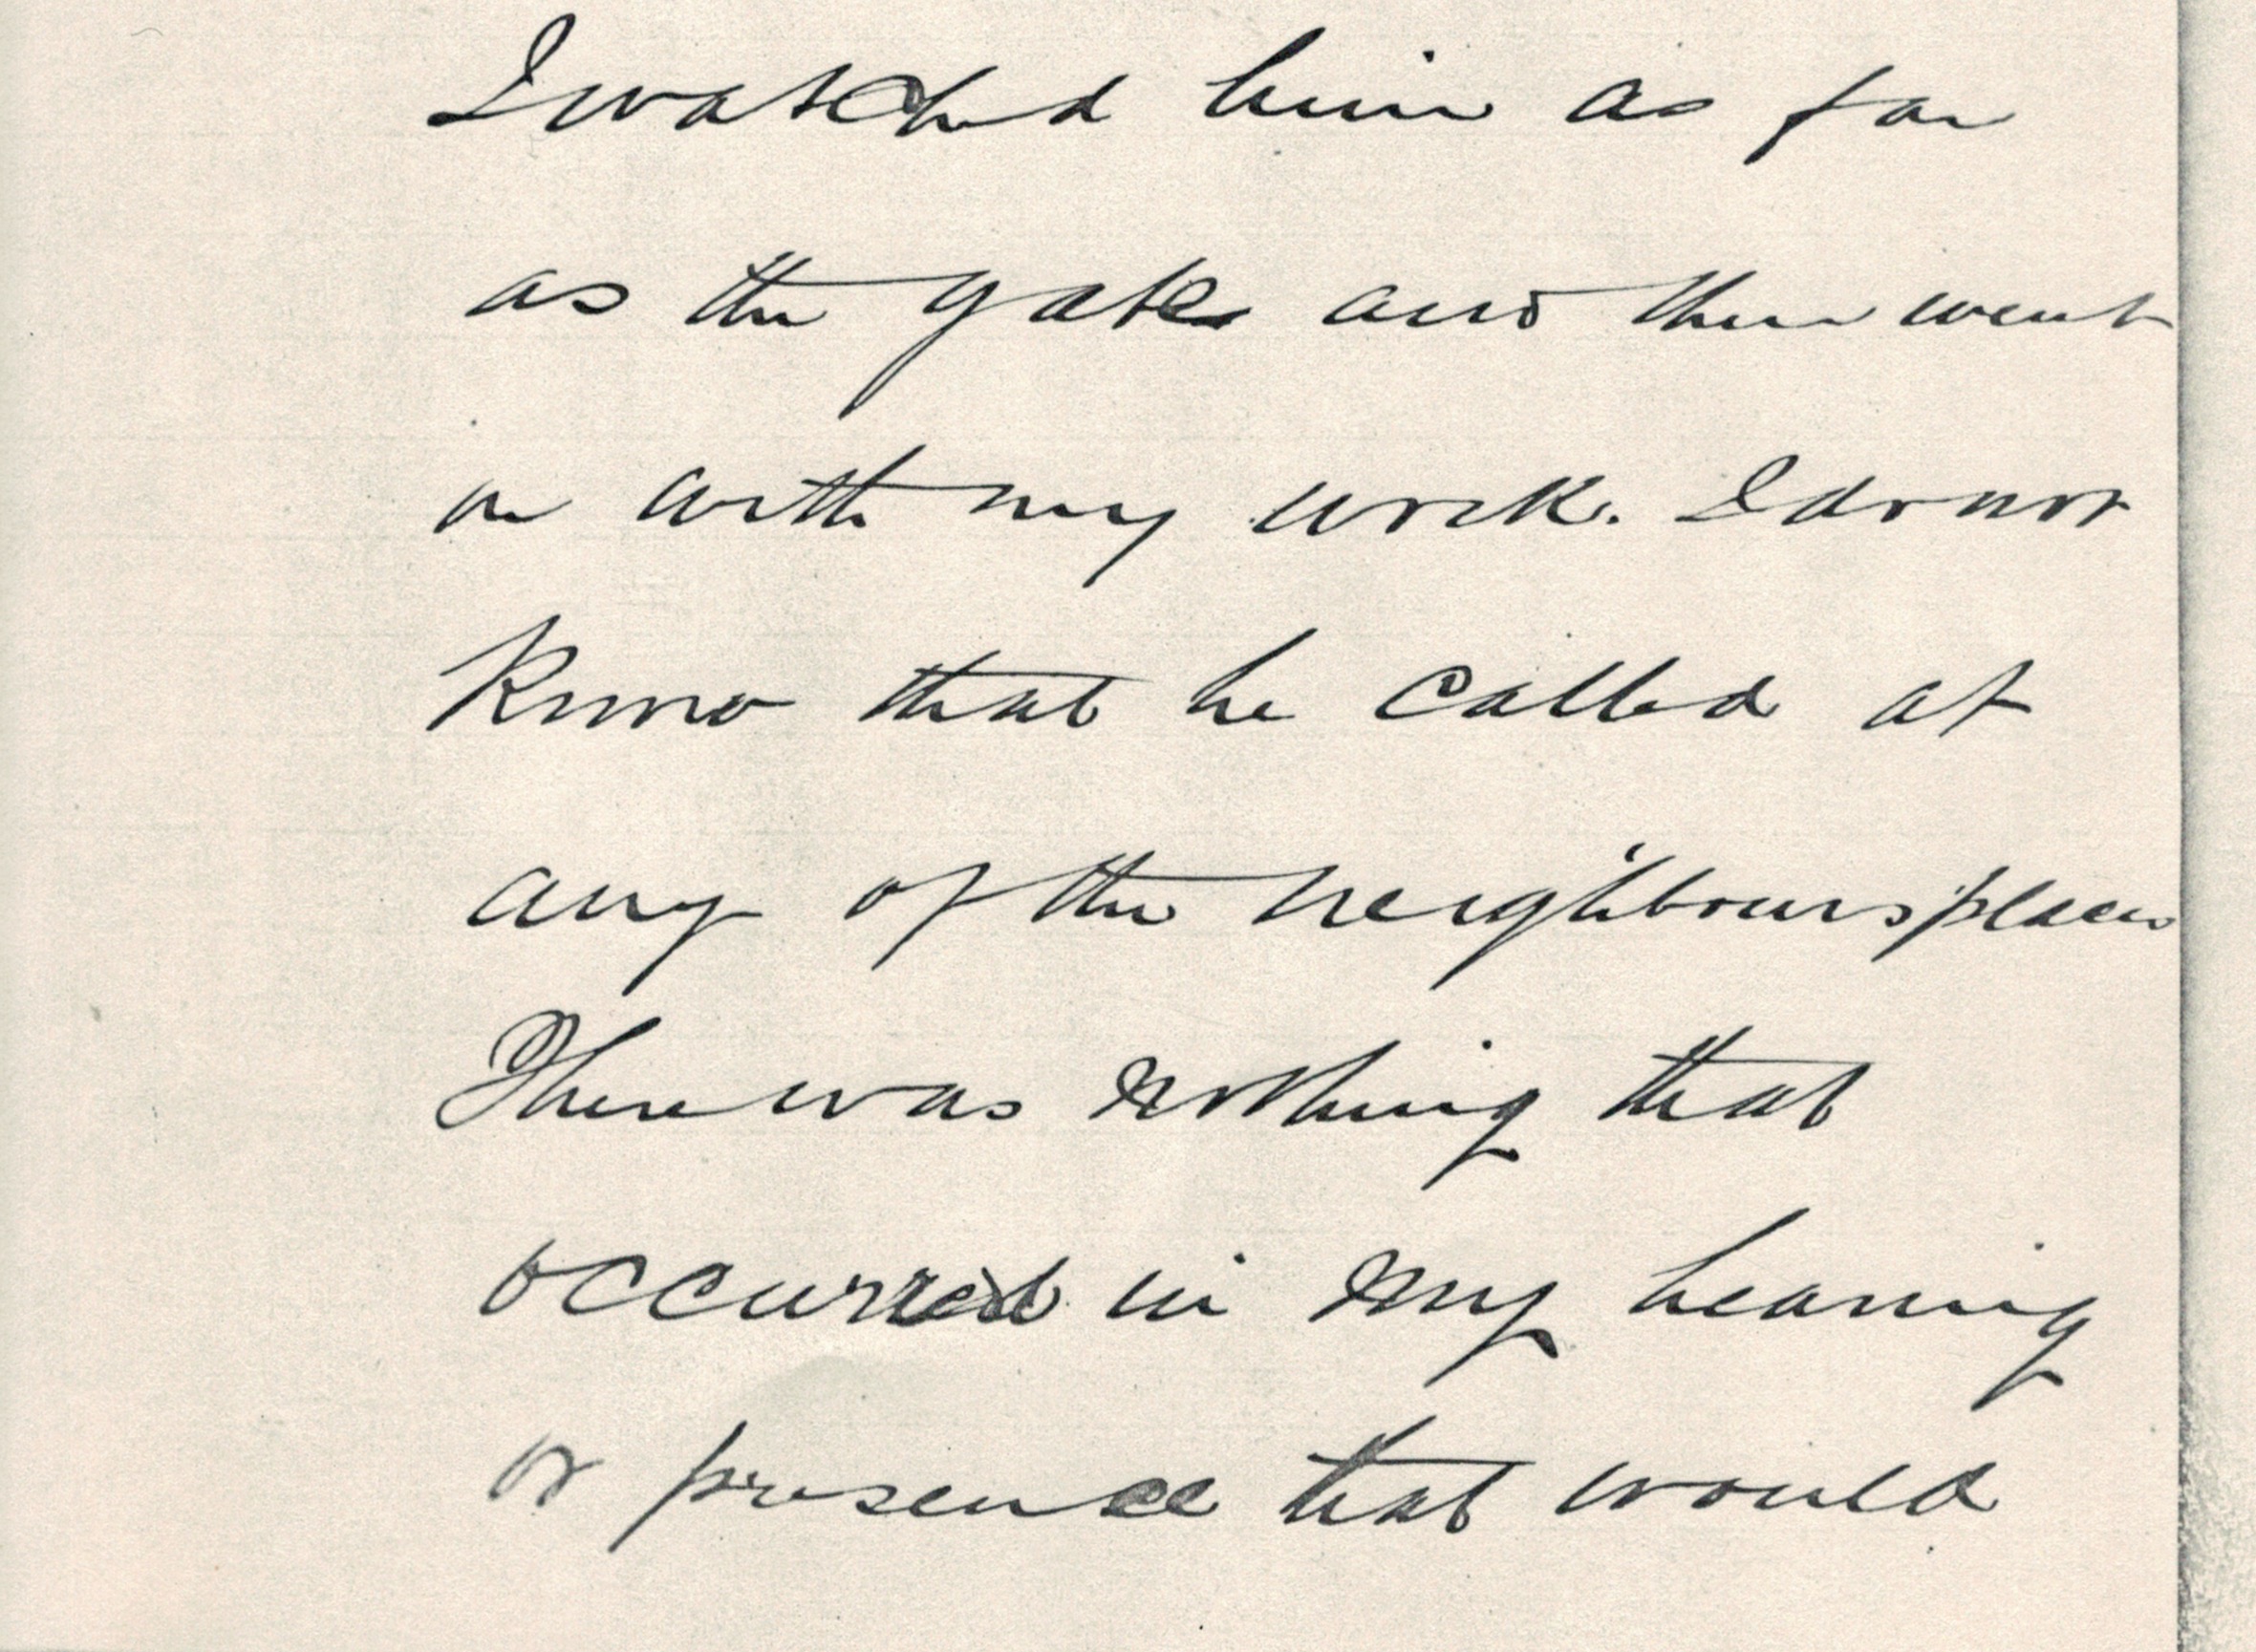 I watched him as far
as the gate and then went
on with my work. I do not
know that he called at
any of the neighbours places
There was nothing that
occurred in my hearing
or presence that would